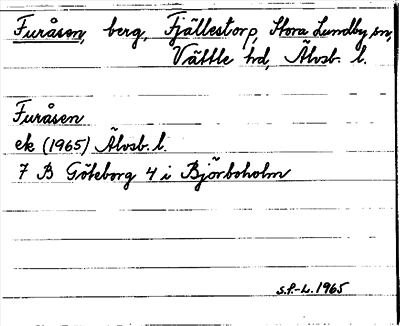 Furåsen, berg, Fjällestorp, Stora Lundby sn,
Vättle hd, Älvsb. l.
Furåsen
ek (1965) Älvsb. l.
7 B Göteborg 4 i Björboholm
S.F.-L. 1965